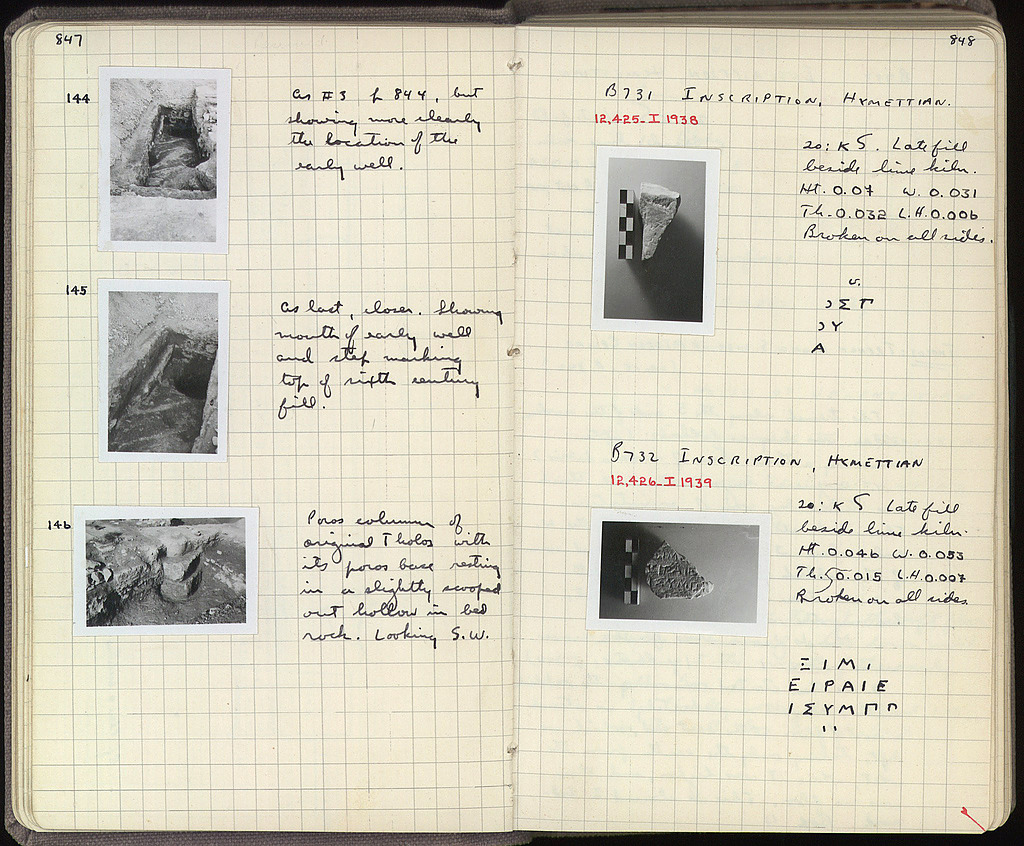 847
144
as #3 of 844, but
showing more clearly
the location of the
early well.
145
as last, closer. Showing
mouth of early well
and step marking
top of sixth century
fill.
146
Poros column of
original Tholos with
its poros base resting
in a slightly scooped
out hollow in bed
rock. Looking S.W.
848
B731 INSCRIPTION, HYMETTIAN.
12,425-I 1938
20: K 5. Late fill
beside lime kiln.
Ht. 0.07 W. 0.031
Th. 0.032 L.H. 0.006
Broken on all sides.
v.
ΣΓ
Υ
Α
B732 INSCRIPTION, HYMETTIAN
12,426-I 1939
20: K 5 Late fill
beside lime kiln.
Ht. 0.046 W. 0.053
Th. 0.015 L.H. 0.007
Broken on all sides.
Ξ Ι Μ Ι
Ε Ι Ρ Α Ι Ε
Ι Σ Υ Μ Π Π
Ι Ι